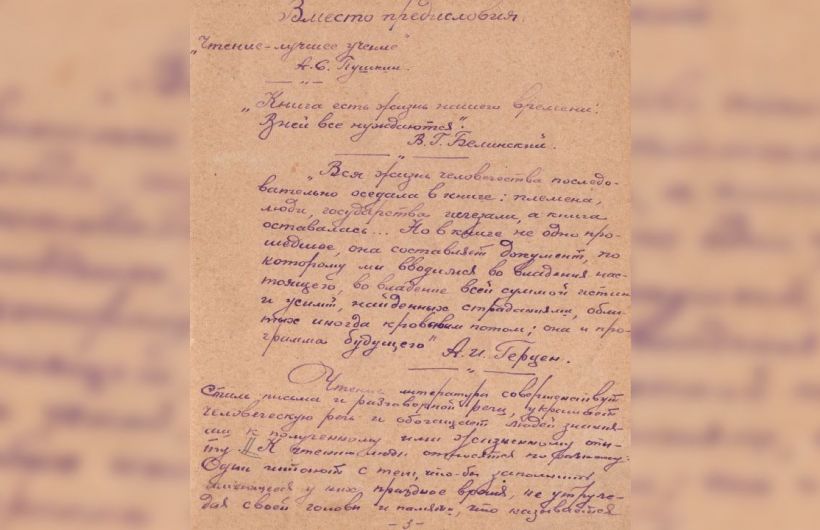 Вместо предисловия.
„Чтение-лучшее учение"
А.С. Пушкин.
„Книга есть жизнь нашего времени:
В ней все нуждаются".
В.Г. Белинский.
„Вся жизнь человечества последо-
вательно оседала в книге: племена,
люди, государства исчезали, а книга
оставалась... Но в книге не одно про-
шедшее, она составляет документ, по
которому ми вводимся во владения нас-
тоящего, во владение всей суммой истин
и усилий, найденных страданиями, обли-
тых иногда кровавым потом; она и про-
грамма будущего"
А.И. Герцен.
Чтение литература совершенствует
стиль письма и разговорной речи, украшает
человеческую речь и обогащает людей знания-
ми, к полученному ими жизненному опы-
ту. К чтению люди относятся по разному:
Одни читают с тем, что-бы заполнить
имеющееся у них праздное время, не утруж-
дая своей головы и памяти, что называется
- 3 -